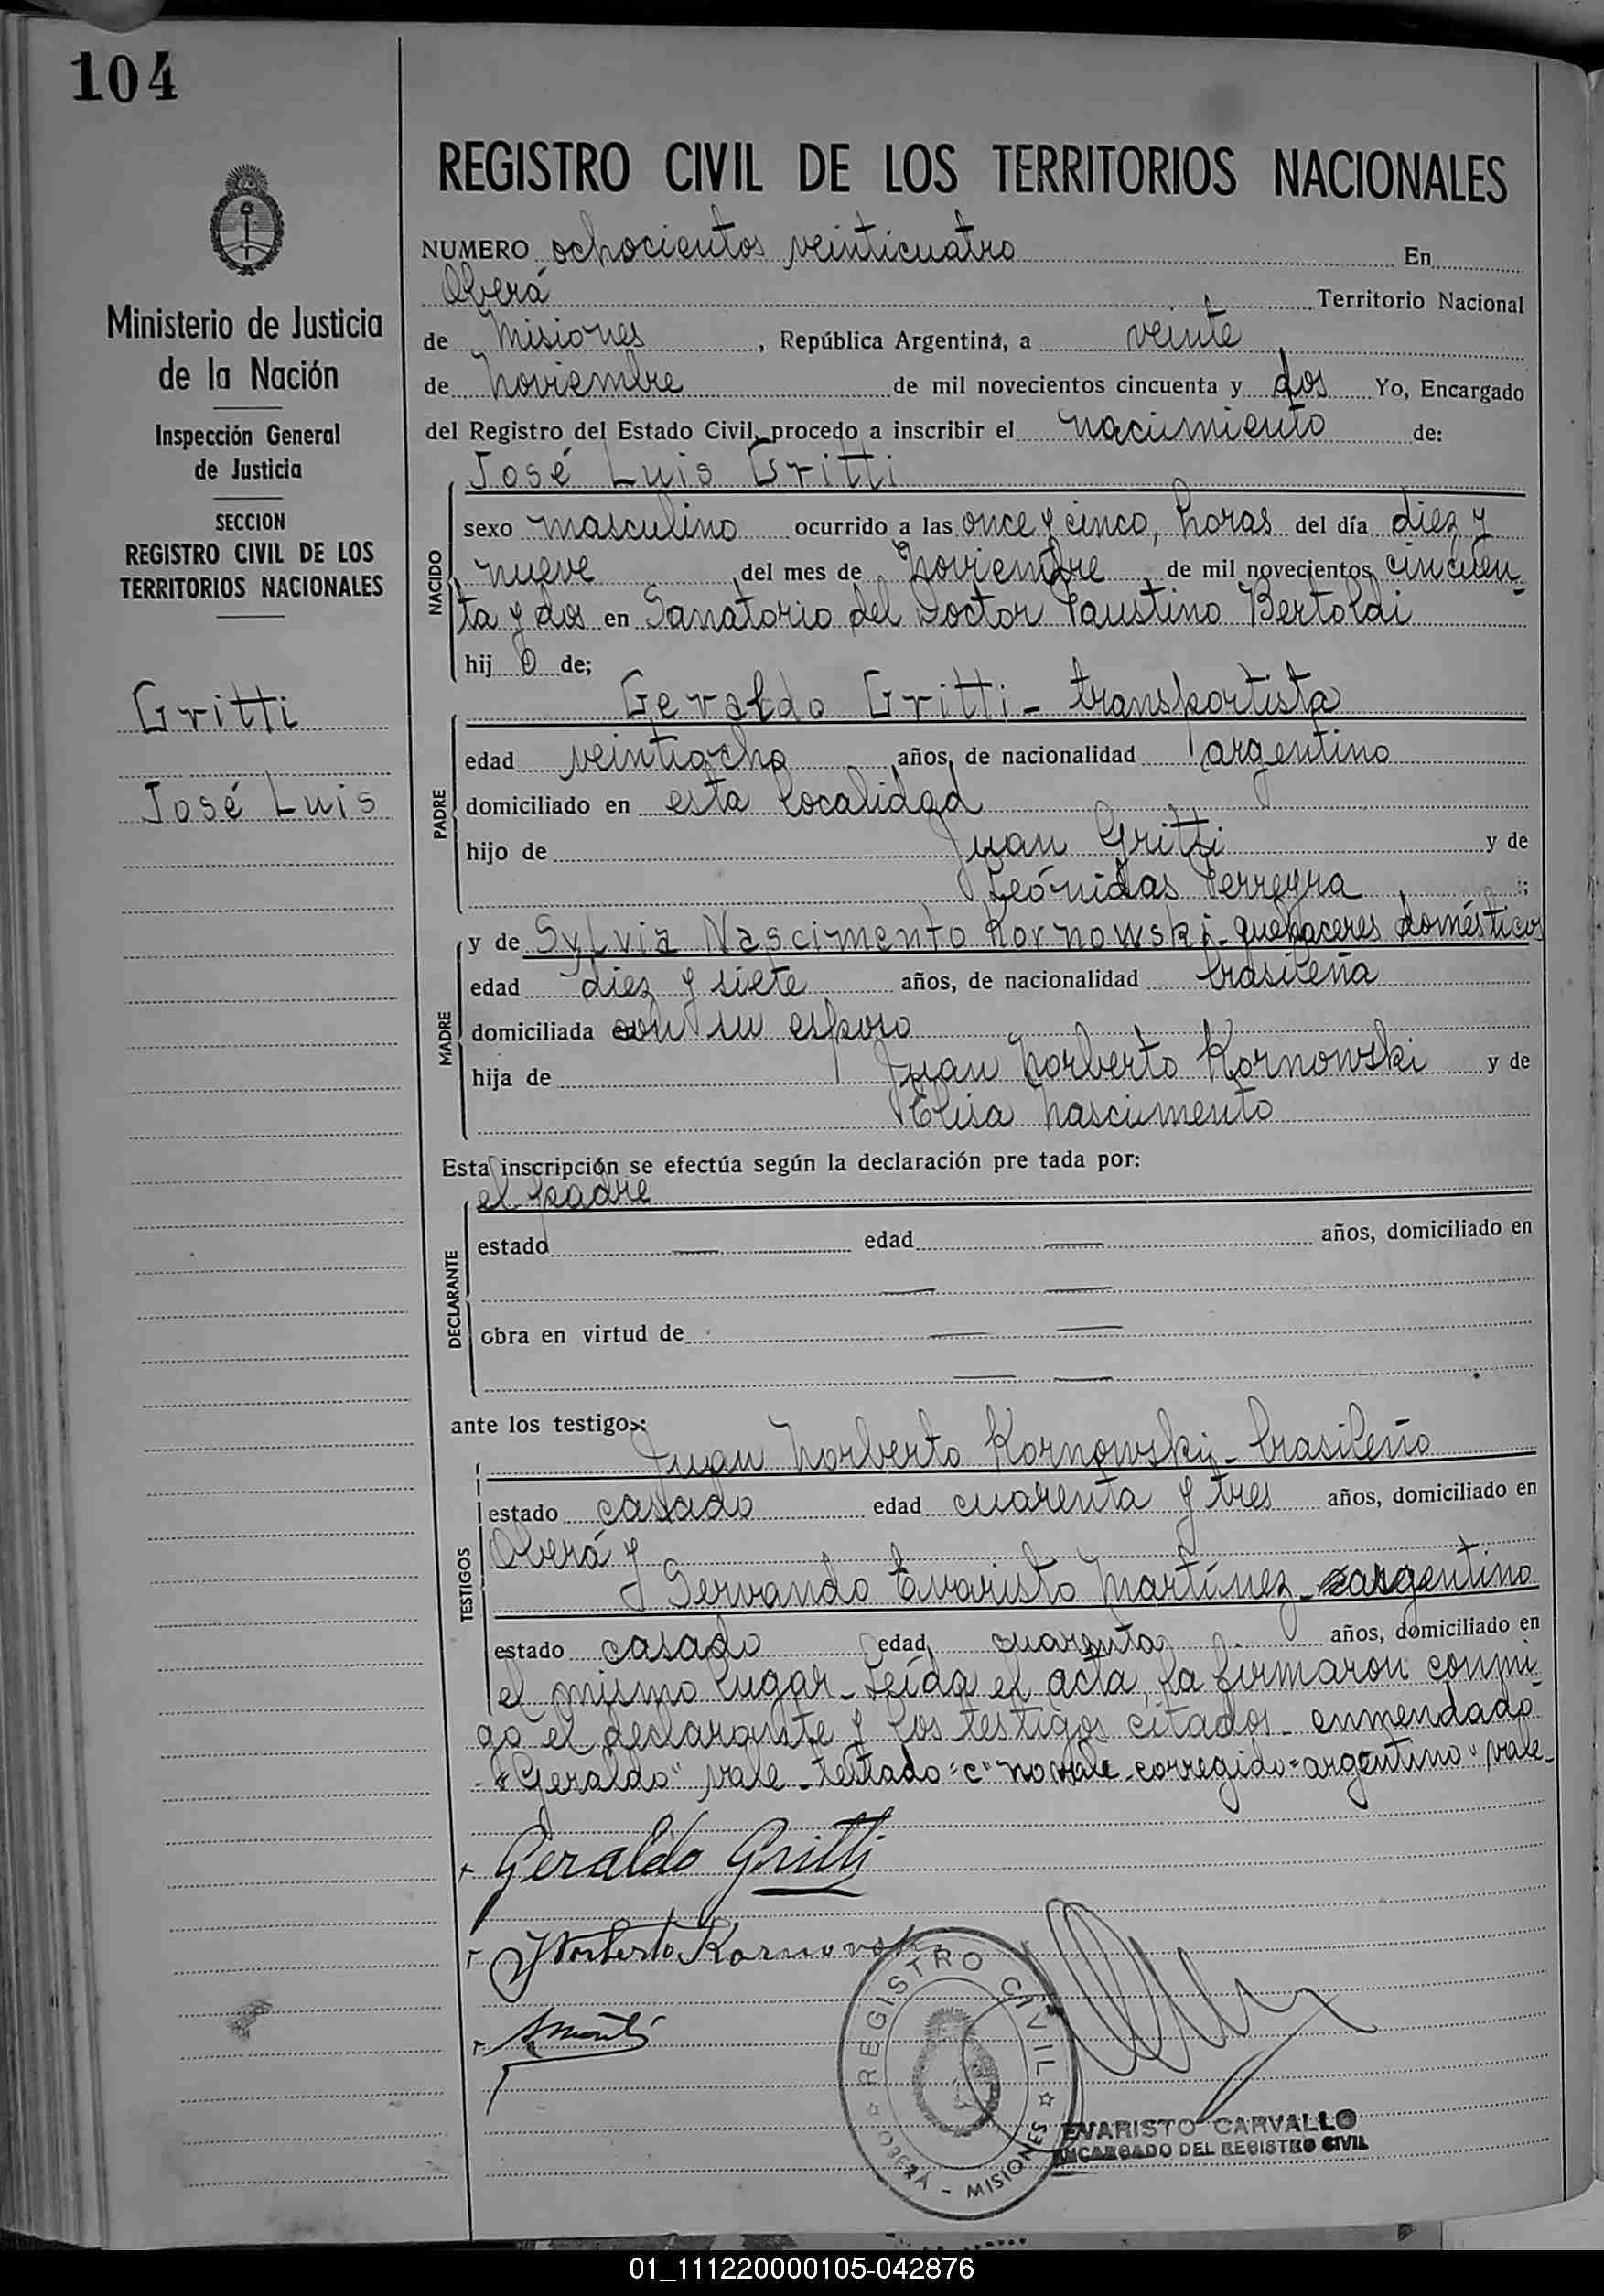 104
REGISTRO CIVIL DE LOS TERRITORIOS NACIONALES
Ministerio de Justicia
de la Nación
Inspección General
de Justicia
SECCION
REGISTRO CIVIL DE LOS
TERRITORIOS NACIONALES
Gritti
José Luis
NUMERO ochocientos veinticuatro En
Oberá Territorio Nacional
de Misiones, República Argentina, a veinte
de Noviembre de mil novecientos cincuenta y dos Yo, Encargado
del Registro del Estado Civil, procedo a inscribir el nacimiento de:
José Luis Gritti
NACIDO
sexo masculino ocurrido a las once y cinco, horas del día diez y
nueve del mes de Noviembre de mil novecientos cincuen-
ta y dos en Sanatorio del Doctor Faustino Bertoldi
hij o de;
PADRE
Geraldo Gritti - transportista
edad veintiocho años, de nacionalidad argentino
domiciliado en esta localidad
hijo de Juan Gritti y de
Leónidas Ferreyra ;
MADRE
y de Sylvia Nascimento Kornowski - quehaceres domésticos
edad diez y siete años, de nacionalidad brasileña
domiciliada con su esposo
hija de Juan Norberto Kornowski y de
Elisa Nascimento
Esta inscripción se efectúa según la declaración pre tada por:
el padre
DECLARANTE
estado — edad — años, domiciliado en
— —
obra en virtud de — —
— —
ante los testigos:
TESTIGOS
Juan Norberto Kornowski - brasileño
estado casado edad cuarenta y tres años, domiciliado en
Oberá y
Servando Evaristo Martínez - argentino
estado casado edad cuarenta años, domiciliado en
el mismo lugar - Leída el acta, la firmaron conmi-
go el declarante y los testigos citados - enmendado
- "Geraldo" vale - testado = c" no vale - corregido = argentino" vale -
Geraldo Gritti
J Norberto Kornowski
REGISTRO CIVIL
OBERÁ - MISIONES
EVARISTO CARVALLO
ENCARGADO DEL REGISTRO CIVIL
01_111220000105-042876